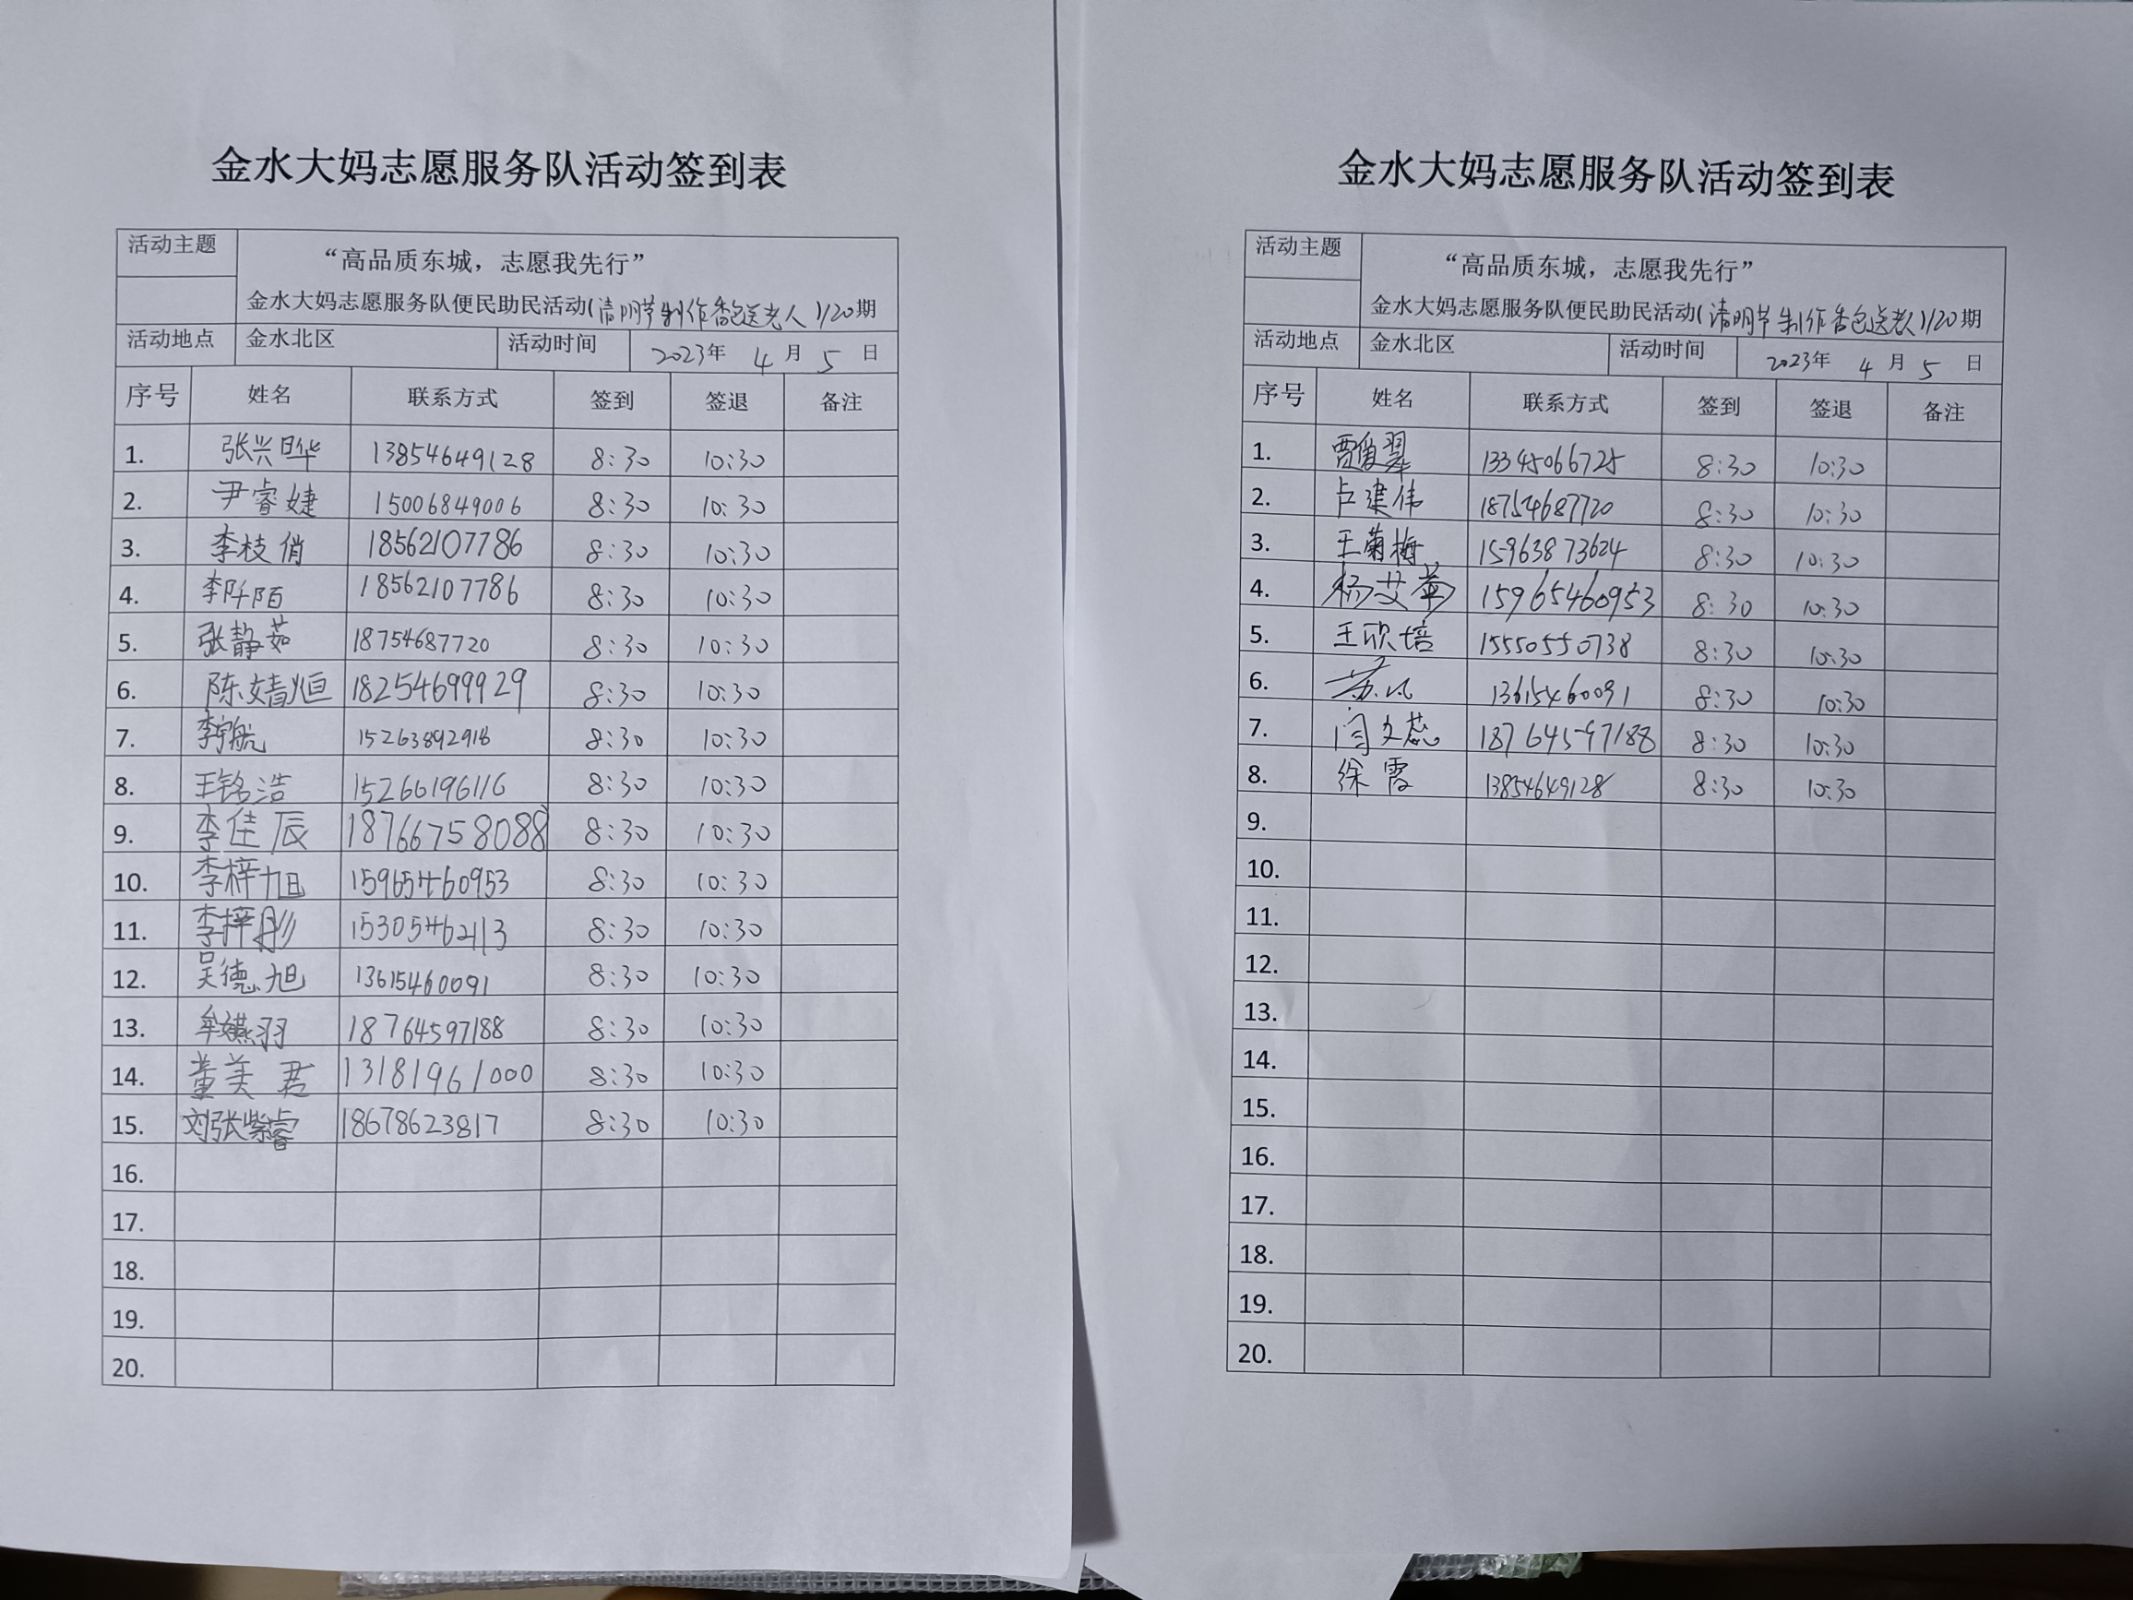 金水大妈志愿服务队活动签到表
活动主题 “高品质东城，志愿我先行”
金水大妈志愿服务队便民助民活动(清明节制作香包送老人)120期
活动地点 金水北区 活动时间 2023年 4 月 5 日
序号 姓名 联系方式 签到 签退 备注
1. 张兴晔 13854649128 8:30 10:30
2. 尹睿婕 15006849006 8:30 10:30
3. 李枝俏 18562107786 8:30 10:30
4. 李阡陌 18562107786 8:30 10:30
5. 张静茹 18754687720 8:30 10:30
6. 陈婧烜 18254699929 8:30 10:30
7. 李宇航 15263892918 8:30 10:30
8. 王铭浩 15266196116 8:30 10:30
9. 李佳辰 18766758088 8:30 10:30
10. 李梓旭 15965460953 8:30 10:30
11. 李梓彤 15305462113 8:30 10:30
12. 吴德旭 13615460091 8:30 10:30
13. 牟嬿羽 18764597188 8:30 10:30
14. 董美君 13181961000 8:30 10:30
15. 刘张紫睿 18678623817 8:30 10:30
16.
17.
18.
19.
20.
金水大妈志愿服务队活动签到表
活动主题 “高品质东城，志愿我先行”
金水大妈志愿服务队便民助民活动(清明节制作香包送老人)120期
活动地点 金水北区 活动时间 2023年 4 月 5 日
序号 姓名 联系方式 签到 签退 备注
1. 贾俊翠 13345066725 8:30 10:30
2. 卢建伟 18754687720 8:30 10:30
3. 王菊梅 15963873624 8:30 10:30
4. 杨艾苹 15965460953 8:30 10:30
5. 王欣培 15550550738 8:30 10:30
6. 13615460091 8:30 10:30
7. 闫文蕊 18764597188 8:30 10:30
8. 徐霞 13854649128 8:30 10:30
9.
10.
11.
12.
13.
14.
15.
16.
17.
18.
19.
20.